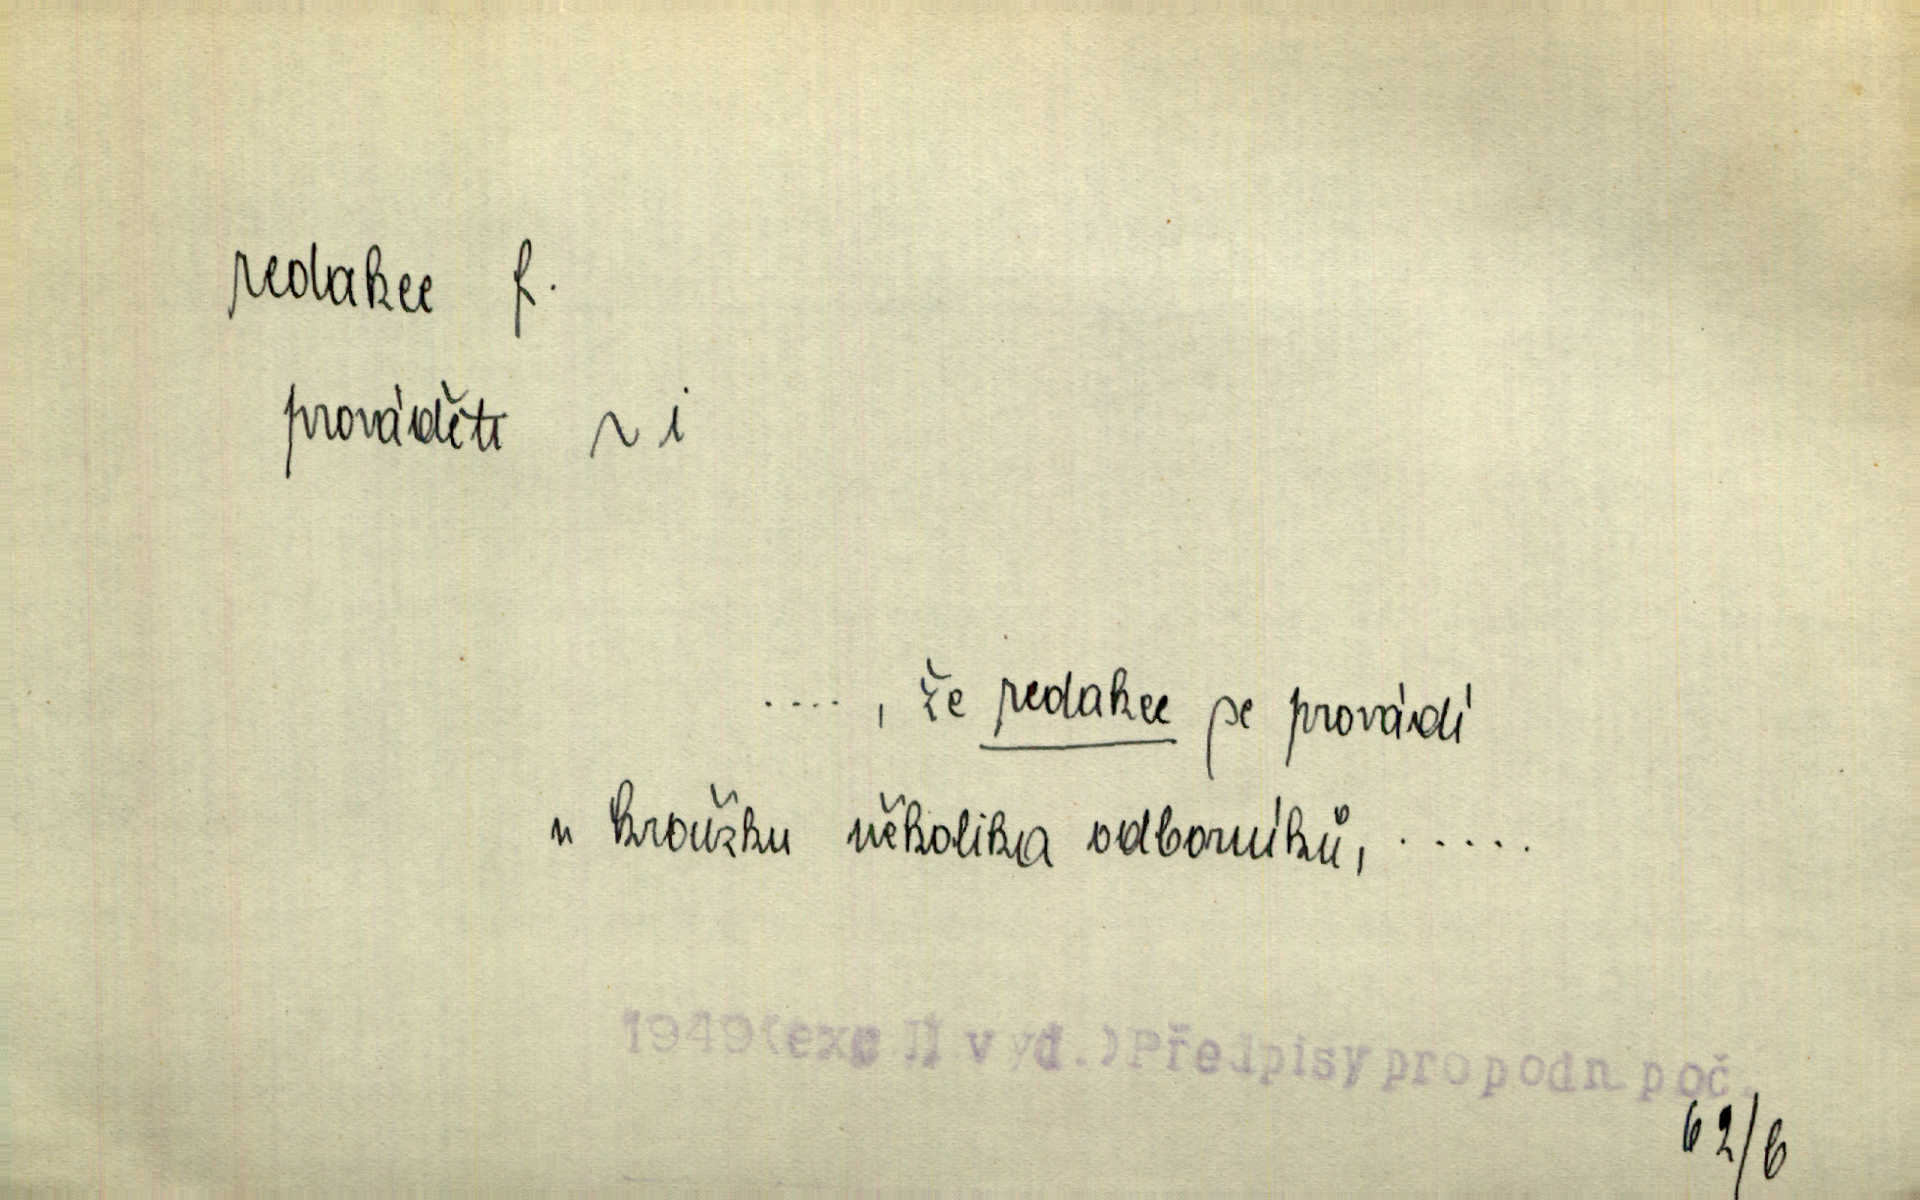 redakce f.
prováděti ~ i
...., že redakce se provádí
u kroužku několika odborníků, .....
1949(exc II vyd.)Předpisy pro podn. poč.
62/6